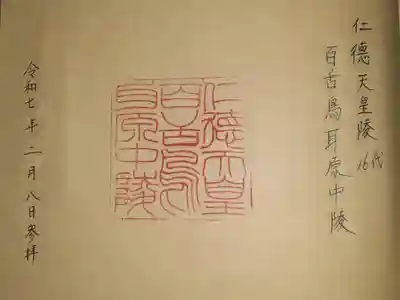 仁德天皇陵 16代
百舌鳥耳原中陵
仁德天皇
百舌鳥
耳原中陵
令和七年二月八日参拝